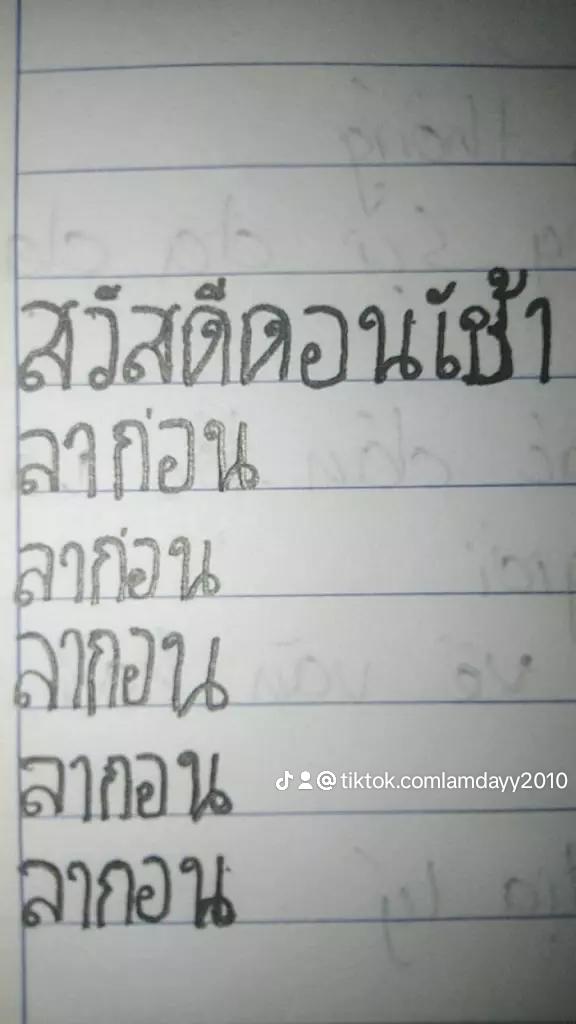 สวัสดีดอนเช้า
ลาก่อน
ลาก่อน
ลากอน
ลากอน
@ tiktok.comlamdayy2010
ลากอน